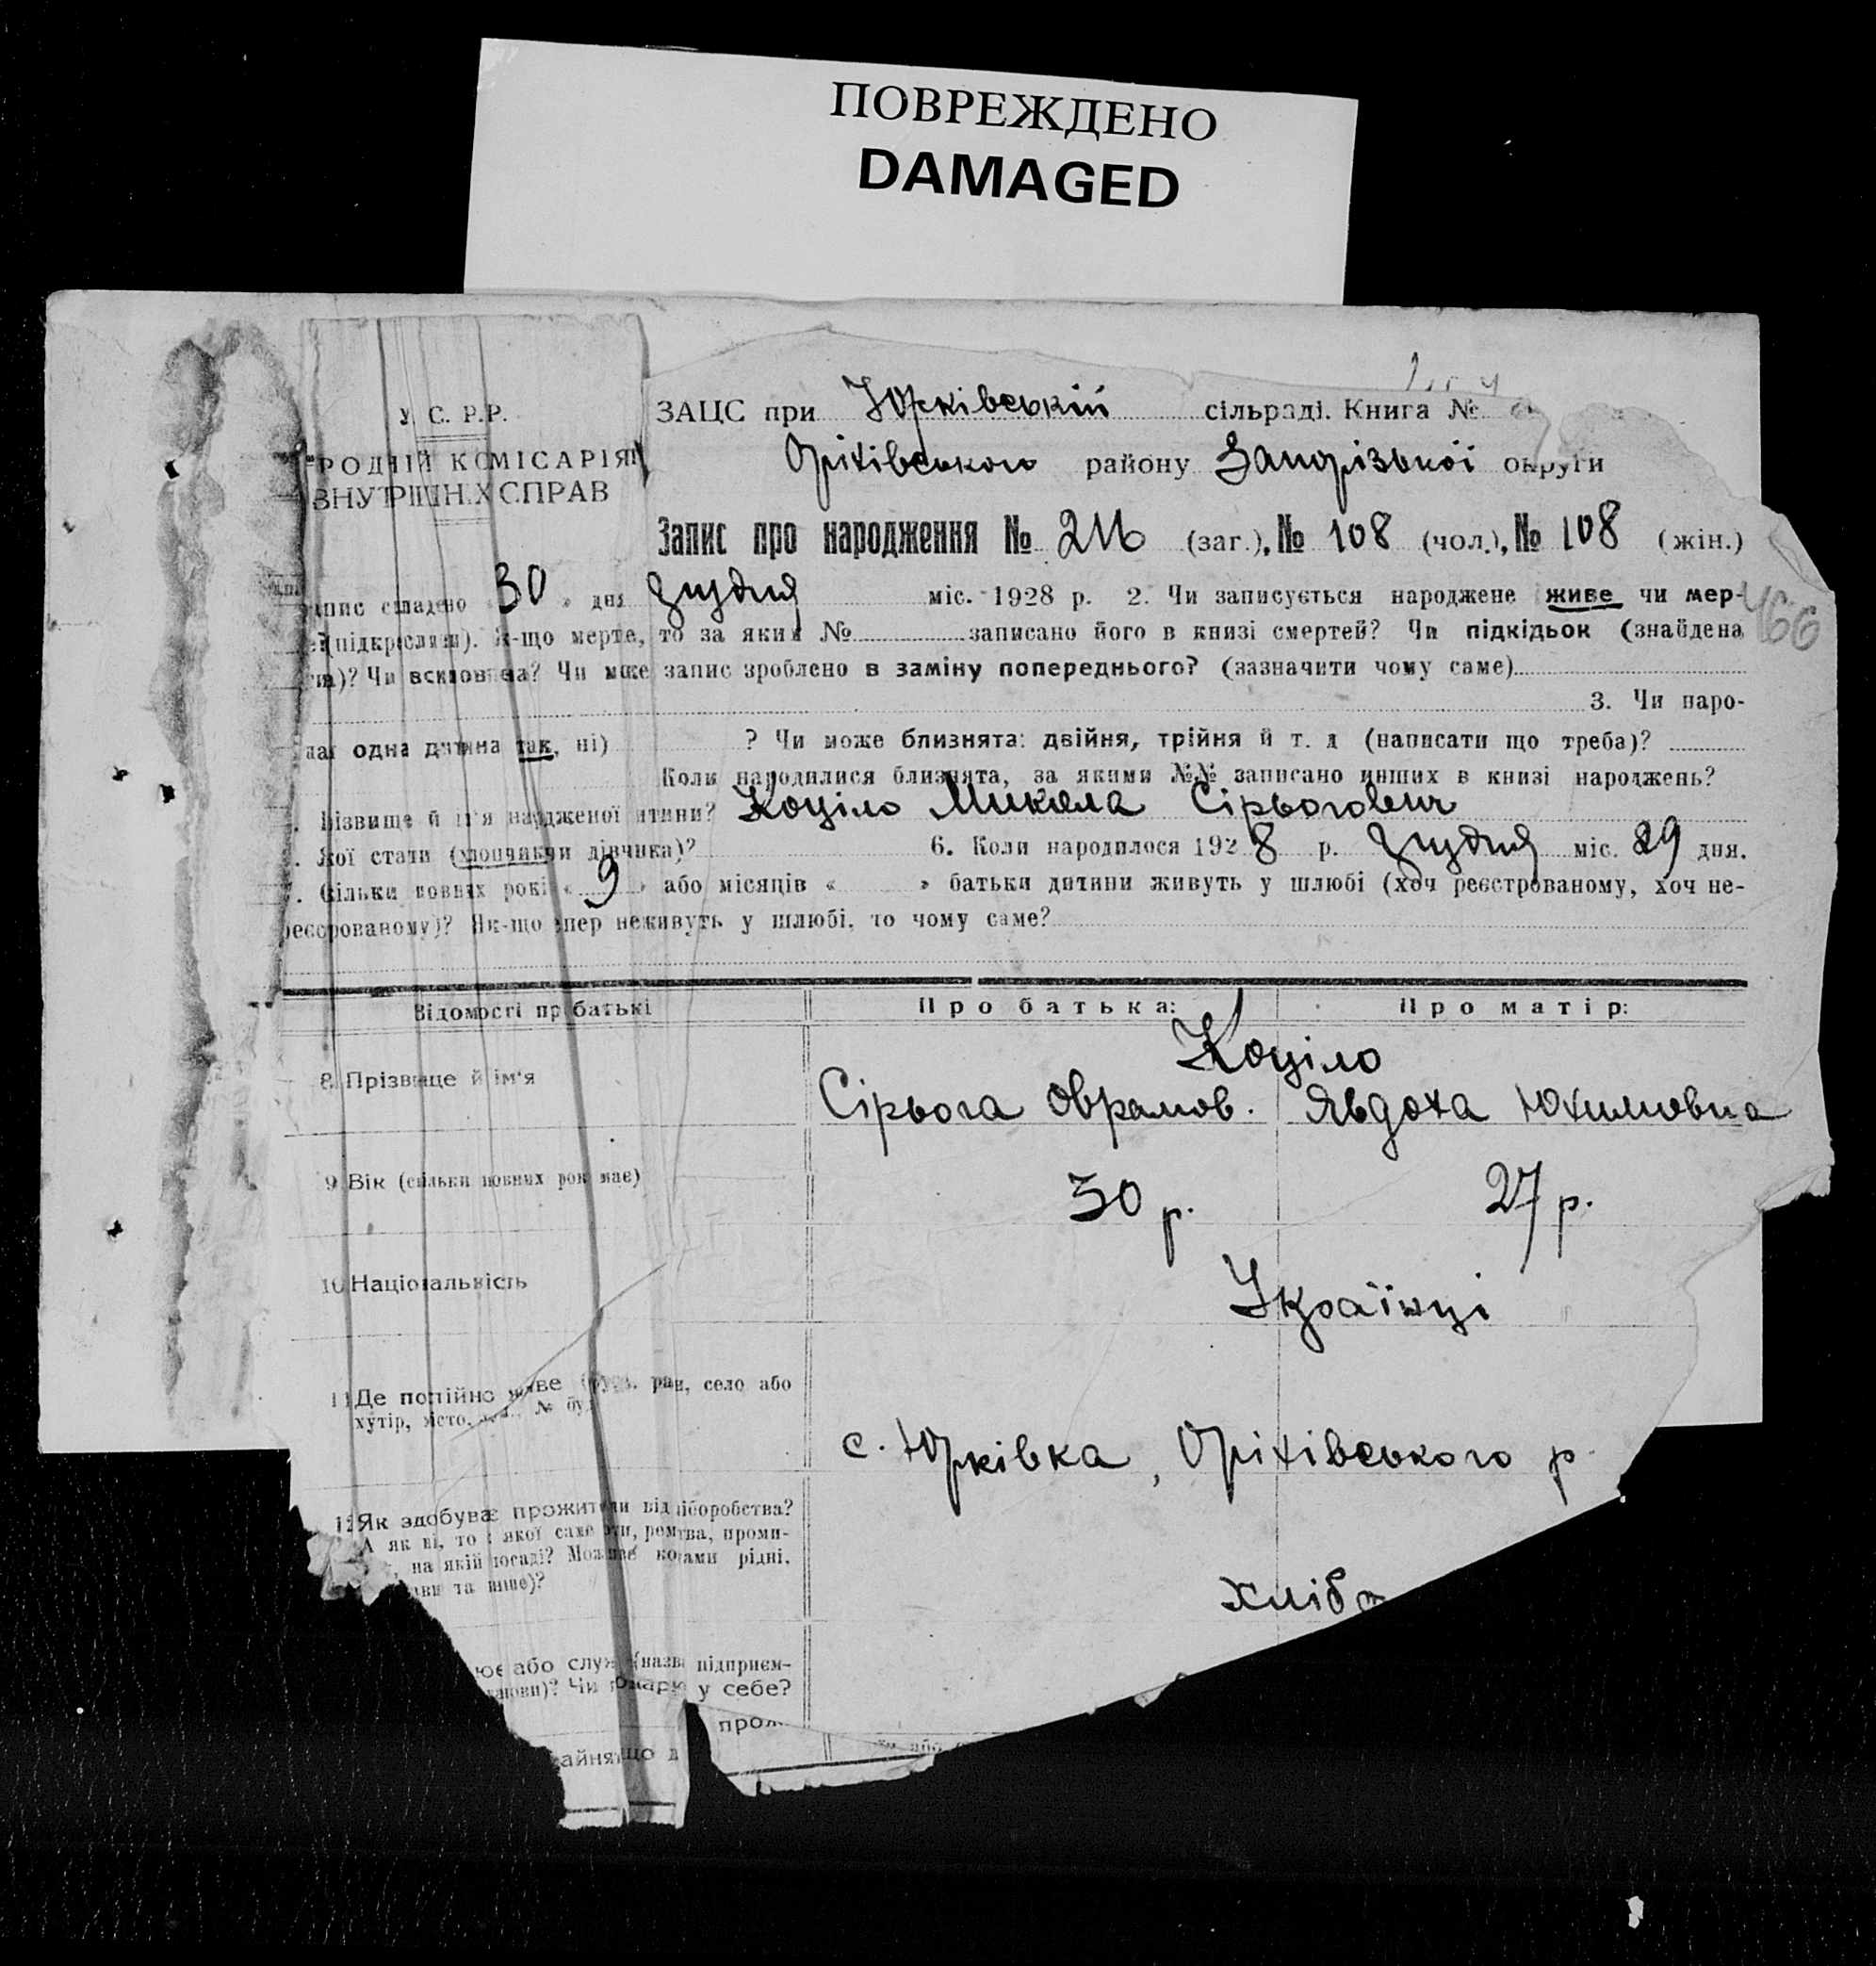 ПОВРЕЖДЕНО
DAMAGED
У. С. Р.Р.
РОДНІЙ КОМІСАРІЯТ
ВНУТРІШН.Х СПРАВ
ЗАЦС при Юрківській сільраді. Книга №
Оріхівського району Запорізької округи
Запис про народження № 216 (заг.), № 108 (чол.), № 108 (жін.)
складено 30 » дня грудня міс. 1928 р. 2. Чи записується народжене живе чи мер-
466
(підкреслити). Я-що мертве, то за яким № записано його в книзі смертей? Чи підкідьок (знайдена
)? Чи Чи може запис зроблено в заміну попереднього? (зазначити чому саме)
3. Чи наро-
одна дитина так, ні) ? Чи може близнята: двійня, трійня й т. д (написати що треба)?
Коли народилися близнята, за якими №№ записано инших в книзі народжень?
Прізвище й ім'я народженої дитини? Коціло Микола Сірьогович
Якої стати (хлопчик чи дівчинка)? 6. Коли народилося 1928 р. грудня міс. 29 дня.
Скільки повних років « 9 » або місяців « » батьки дитини живуть у шлюбі (хоч реєстрованому, хоч не-
реєстрованому)? Як-що неживуть у шлюбі, то чому саме?
Відомості про батьків
Про батька:
Про матір:
8. Прізвище й ім'я
Коціло
Сірьога Оврамов. Явдоха Юхимовна
9. Вік (скільки повних рок має)
30 р. 27 р.
10. Національність
Українці
11. Де постійно живе село або
хутір, місто,
с. Юрківка, Оріхівського р.
12. Як здобуває прожиток від хліборобства?
А як ні, то з якої саме проми-
на якій посаді? рідні,
та инше)?
хлібо
або служ (назва підприєм-
)? Чи у себе?